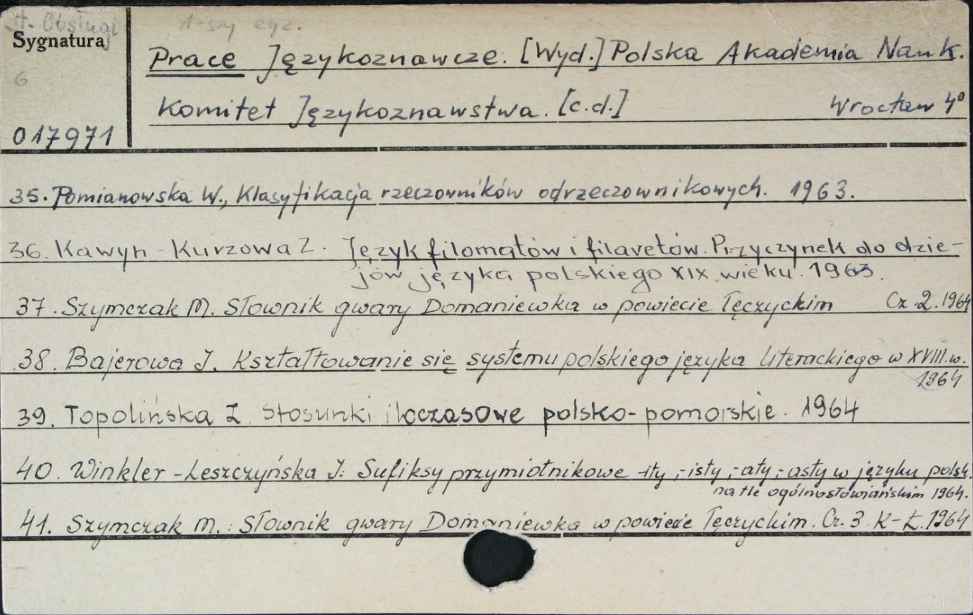 H. Obsługi
1-szy egz.
Sygnatura
6
017971
Prace Językoznawcze. [Wyd.] Polska Akademia Nauk.
Komitet Językoznawstwa. [c.d.] Wrocław 4°
35. Pomianowska W., Klasyfikacja rzeczowników odrzeczownikowych. 1963.
36. Kawyn-Kurzowa Z. Język filomatów i filaretów. Przyczynek do dzie-
jów języka polskiego XIX wieku. 1963.
37. Szymczak M. Słownik gwary Domaniewka w powiecie Łęczyckim Cz. 2. 1964
38. Bajerowa I. Kształtowanie się systemu polskiego języka literackiego w XVIII. w.
1964
39. Topolińska Z. Stosunki iloczasowe polsko-pomorskie. 1964
40. Winkler-Leszczyńska I: Sufiksy przymiotnikowe -ity, -isty, -aty, -asty w języku polsk.
na tle ogólnosłowiańskim 1964.
41. Szymczak M.: Słownik gwary Domaniewka w powiecie Łęczyckim. Cz. 3. K-Ł. 1964